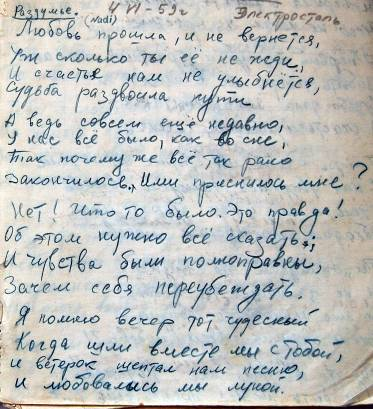 Раздумье. (Nadi) 4 VI-59г Электросталь
Любовь прошла, и не вернется,
Уж сколько ты её не жди,
И счастье нам не улыбнётся,
Судьба раздвоила пути
А ведь совсем ещё недавно,
У нас всё было, как во сне,
Так почему же всё так рано
Закончилось. Или приснилось мне?
Нет! Что то было. Это правда!
Об этом нужно всё сказать;
И чувства были полноправны,
Зачем себя переубеждать.
Я помню вечер тот чудесный
Когда шли вместе мы с тобой,
и ветерок шептал нам песню,
и любовались мы луной.